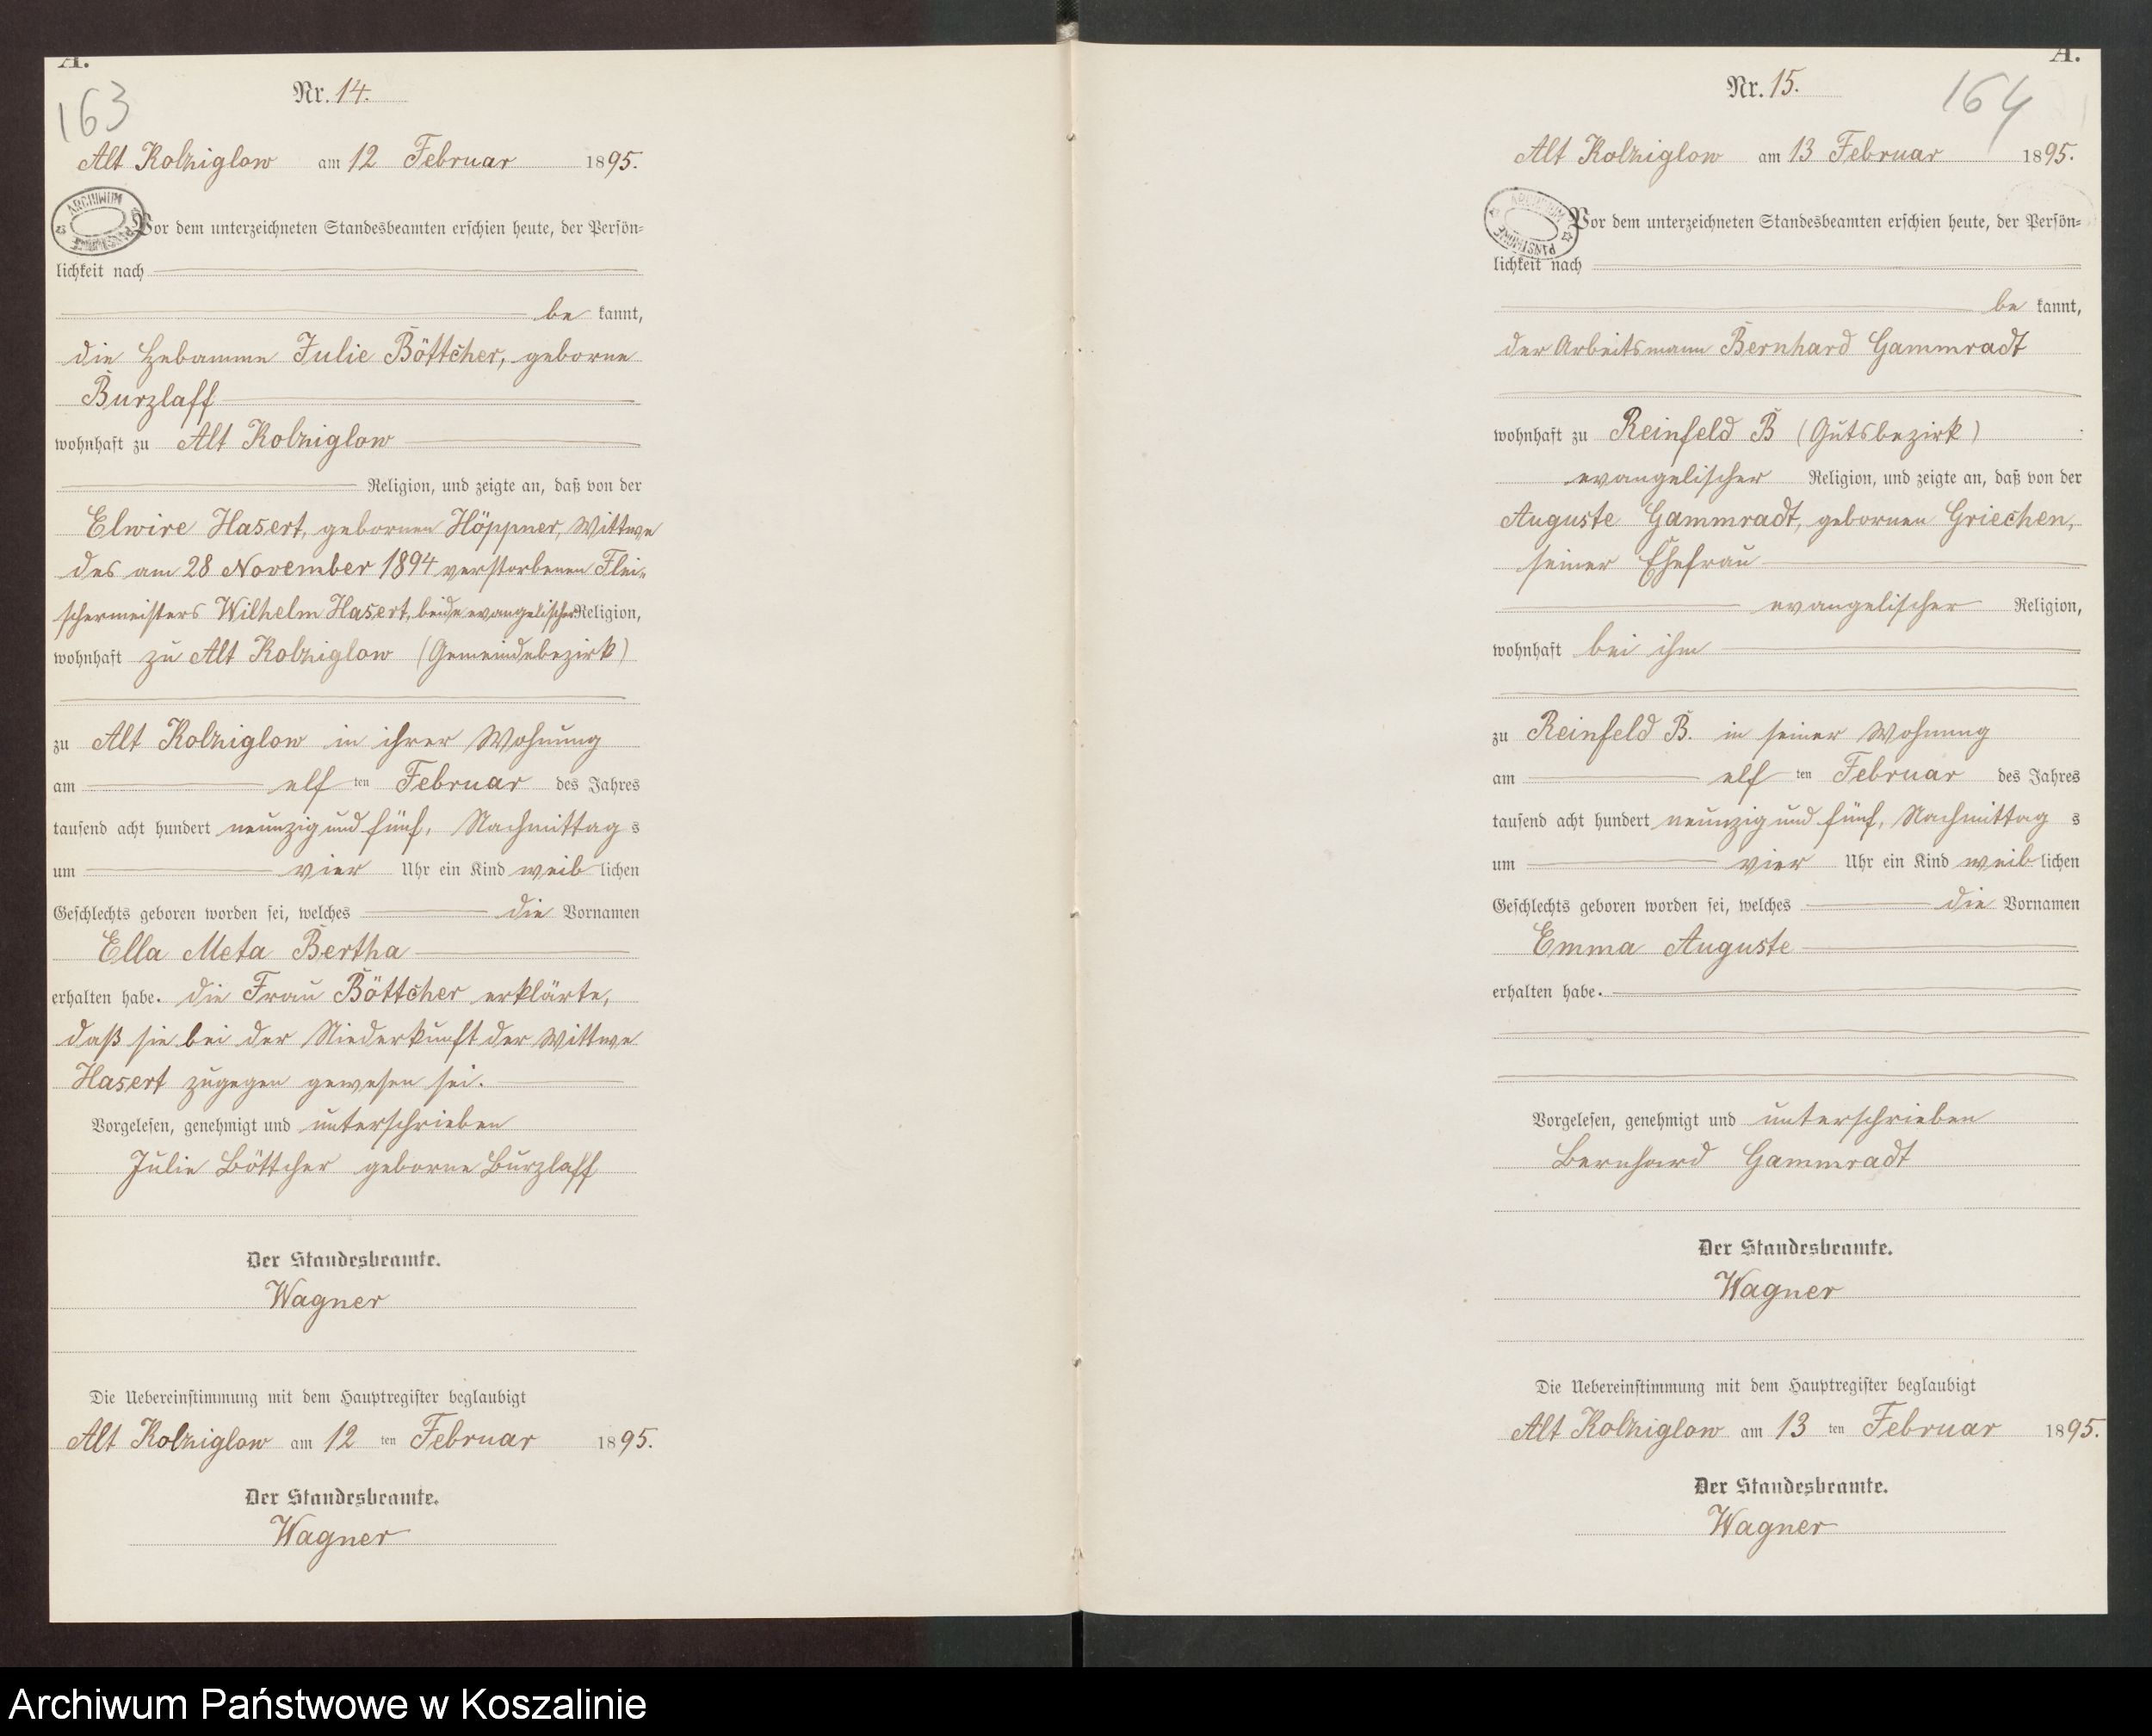 A.
Nr. 14.
163
Alt Kolziglow am 12 Februar 1895.
ARCHIWUM
Vor dem unterzeichneten Standesbeamten erschien heute, der Persön=
lichkeit nach
be kannt,
die Hebamme Julie Böttcher, geborne
Burzlaff
wohnhaft zu Alt Kolziglow
Religion, und zeigte an, daß von der
Elwire Hasert, gebornen Höppner, Wittwe
des am 28 November 1894 verstorbenen Flei=
schermeisters Wilhelm Hasert, beide evangelischer Religion,
wohnhaft zu Alt Kolziglow (Gemeindebezirk)
zu Alt Kolziglow in ihrer Wohnung
am elf ten Februar des Jahres
tausend acht hundert neunzig und fünf, Nachmittag s
um vier Uhr ein Kind weib lichen
Geschlechts geboren worden sei, welches die Vornamen
Ella Meta Bertha
erhalten habe. Die Frau Böttcher erklärte,
daß sie bei der Niederkunft der Wittwe
Hasert zugegen gewesen sei.
Vorgelesen, genehmigt und unterschrieben
Julie Böttcher geborne Burzlaff
Der Standesbeamte.
Wagner
Die Uebereinstimmung mit dem Hauptregister beglaubigt
Alt Kolziglow am 12 ten Februar 1895.
Der Standesbeamte.
Wagner
A.
Nr. 15.
164
Alt Kolziglow am 13 Februar 1895.
ARCHIWUM PAŃSTWOWE
Vor dem unterzeichneten Standesbeamten erschien heute, der Persön=
lichkeit nach
be kannt,
der Arbeitsmann Bernhard Gammradt
wohnhaft zu Reinfeld B (Gutsbezirk)
evangelischer Religion, und zeigte an, daß von der
Auguste Gammradt, gebornen Griechen,
seiner Ehefrau
evangelischer Religion,
wohnhaft bei ihm
zu Reinfeld B. in seiner Wohnung
am elf ten Februar des Jahres
tausend acht hundert neunzig und fünf, Nachmittag s
um vier Uhr ein Kind weib lichen
Geschlechts geboren worden sei, welches die Vornamen
Emma Auguste
erhalten habe.
Vorgelesen, genehmigt und unterschrieben
Bernhard Gammradt
Der Standesbeamte.
Wagner
Die Uebereinstimmung mit dem Hauptregister beglaubigt
Alt Kolziglow am 13 ten Februar 1895.
Der Standesbeamte.
Wagner
Archiwum Państwowe w Koszalinie